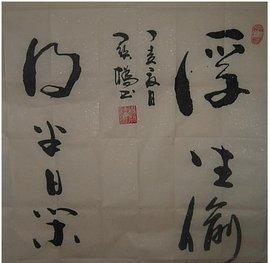 浮生偷
得半日闲
丁亥夏月